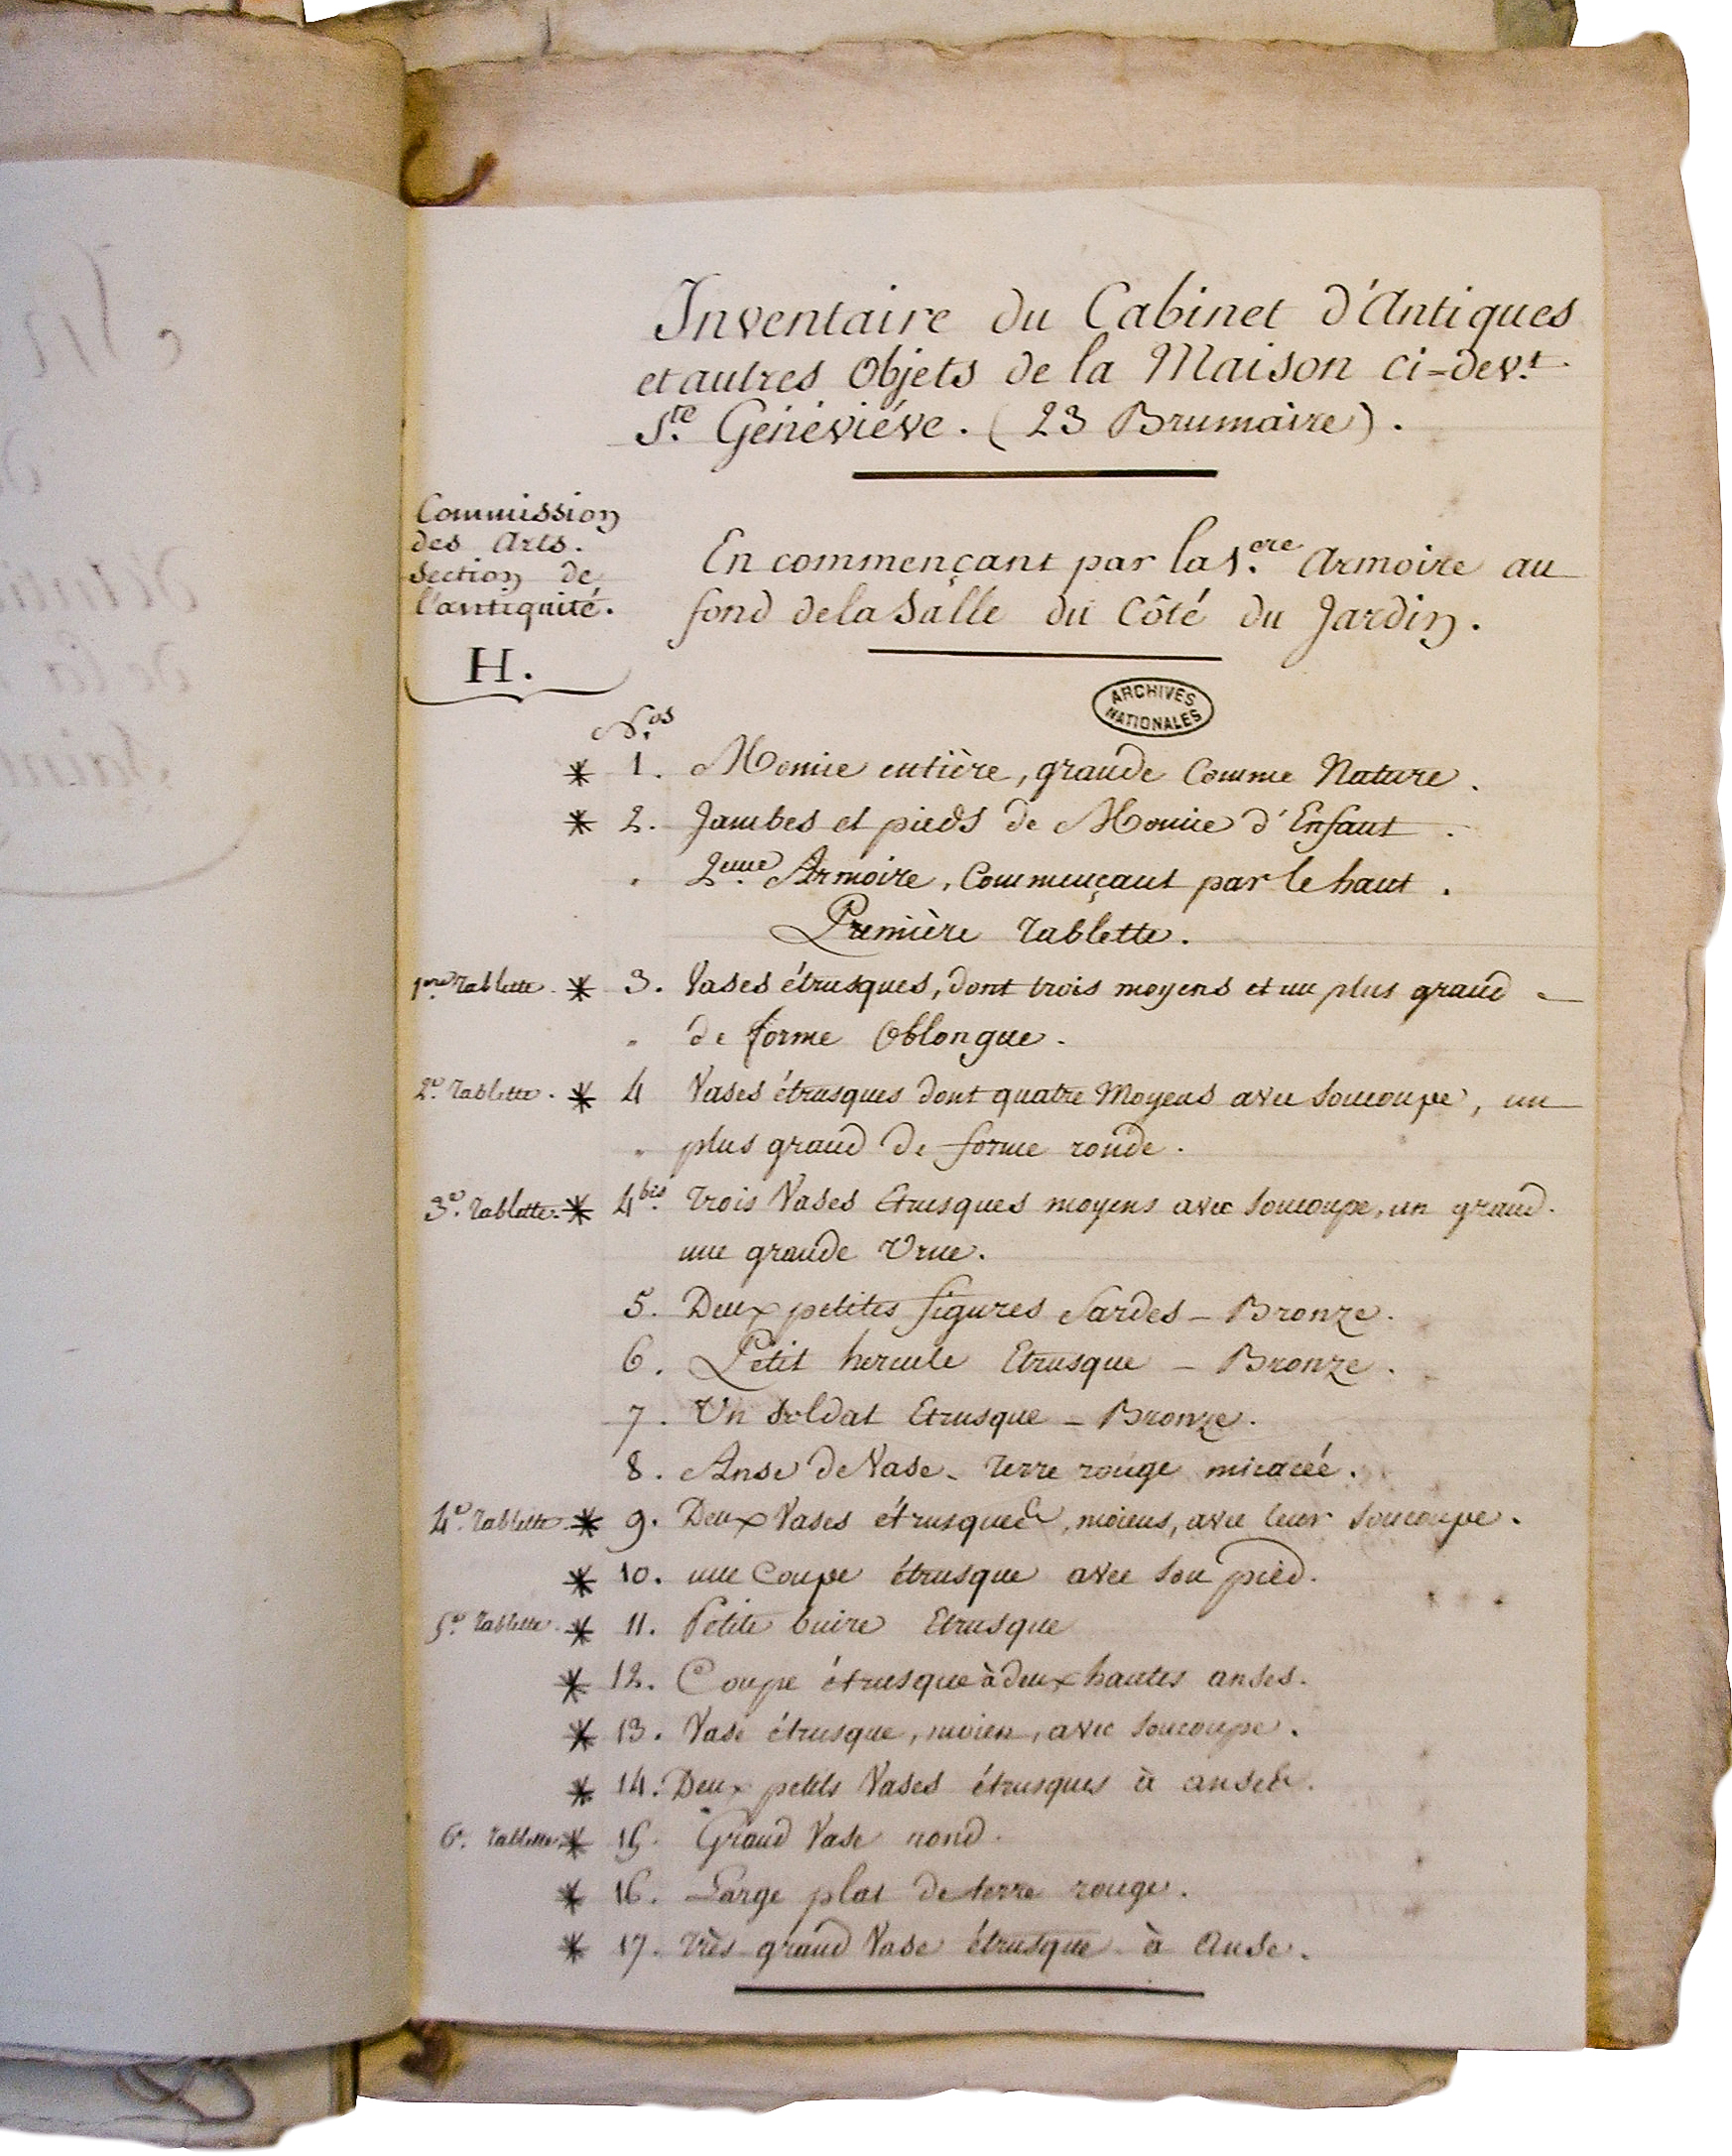 Inventaire du Cabinet d'Antiques
et autres Objets de la Maison ci-dev.t
S.te Généviéve. (23 Brumaire).
Commission
des Arts.
Section de
l'antiquité.
H.
En commençant par la 1.ere Armoire au
fond de la Salle du Côté du Jardin.
ARCHIVES
NATIONALES
N.os
* 1. Momie entière, grande Comme Nature.
* 2. Jambes et pieds de Momie d'Enfant.
2.eme Armoire, Commençant par le haut.
Première Tablette.
1.ere Tablette. * 3. Vases étrusques, dont trois moyens et un plus grand
de forme Oblongue.
2.e Tablette. * 4 Vases étrusques dont quatre Moyens avec Soucoupe, un
plus grand de forme ronde.
3.e Tablette. * 4.bis Trois Vases Etrusques moyens avec Soucoupe, un grand.
une grande Urne.
5. Deux petites figures Sardes - Bronze.
6. Petit hercule Etrusque - Bronze.
7. Un Soldat Etrusque - Bronze.
8. Anse de Vase - Terre rouge micacée.
4.e Tablette. * 9. Deux Vases étrusques, moiens, avec leur Soucoupe.
* 10. une Coupe étrusque avec Son pied.
5.e Tablette. * 11. Petite buire Etrusque
* 12. Coupe étrusque à deux hautes anses.
* 13. Vase étrusque, moien, avec Soucoupe.
* 14. Deux petits Vases étrusques à anses.
6.e Tablette. * 15. Grand Vase rond.
* 16. Large plat de terre rouge.
* 17. Très grand Vase étrusque à Anse.